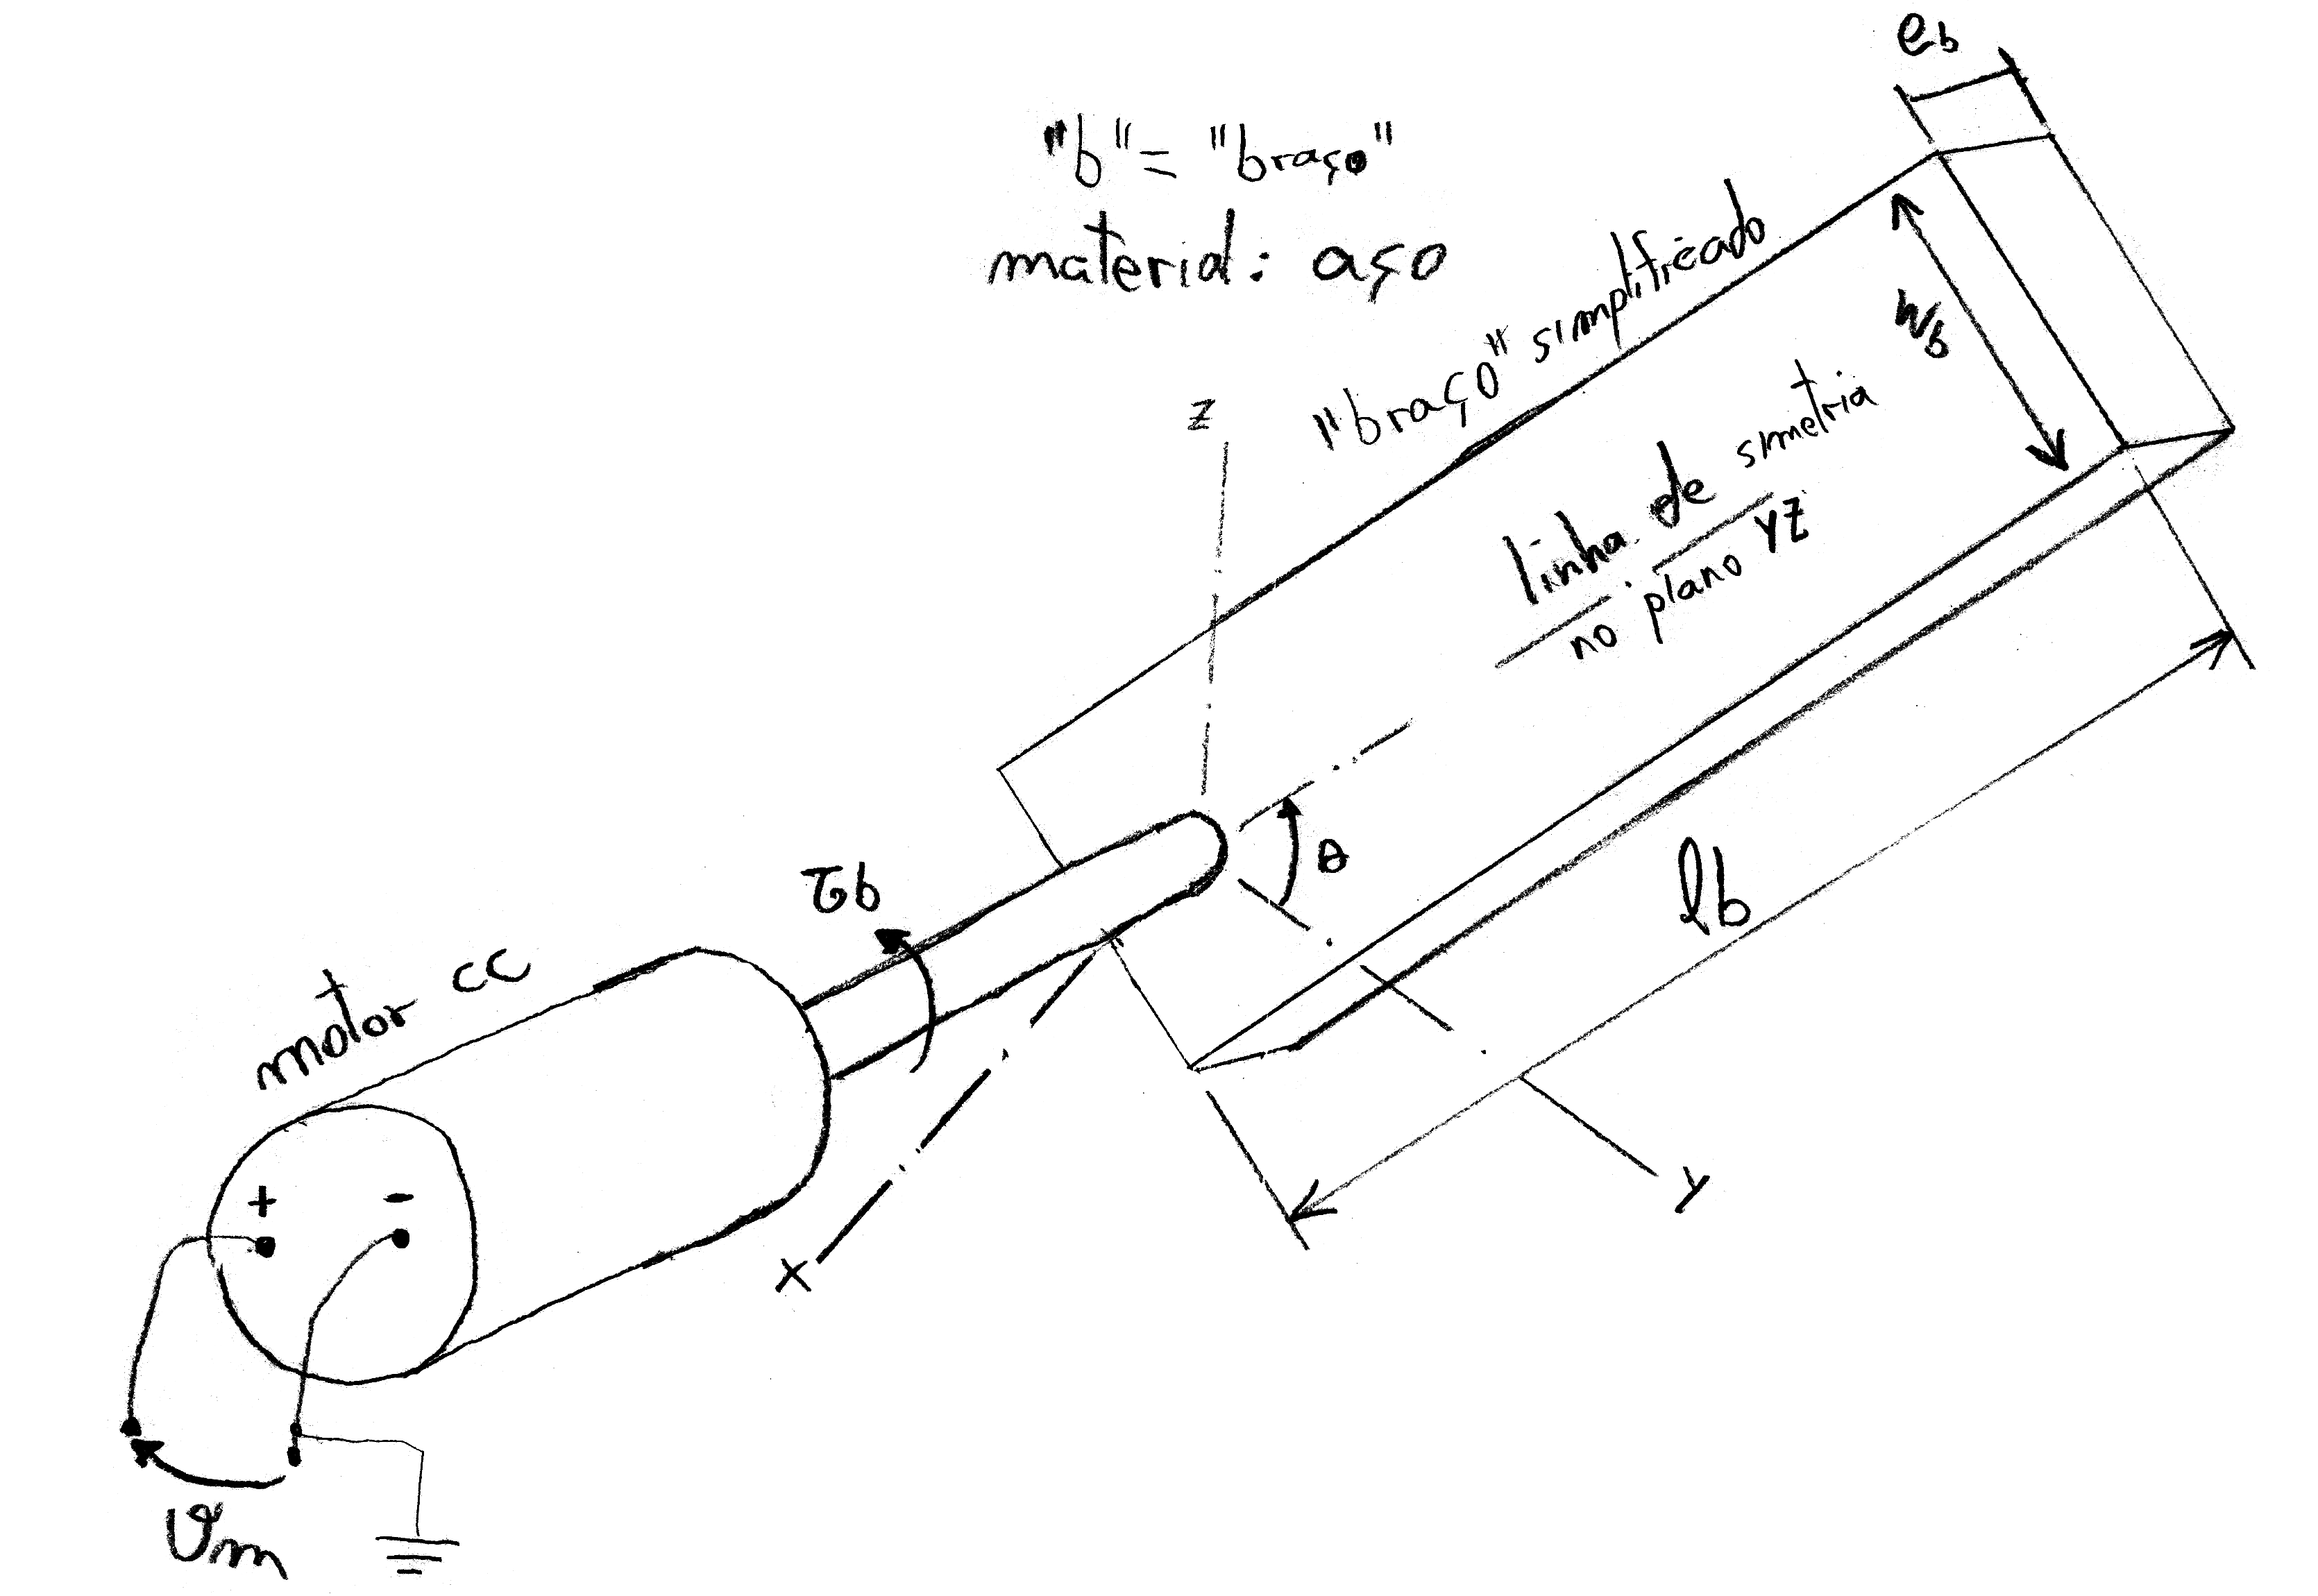 eb
"b" = "braço"
material: aço
"braço" simplificado
wb
z
linha de simetria
no plano YZ
θ
lb
τb
motor cc
y
x
+ -
vm